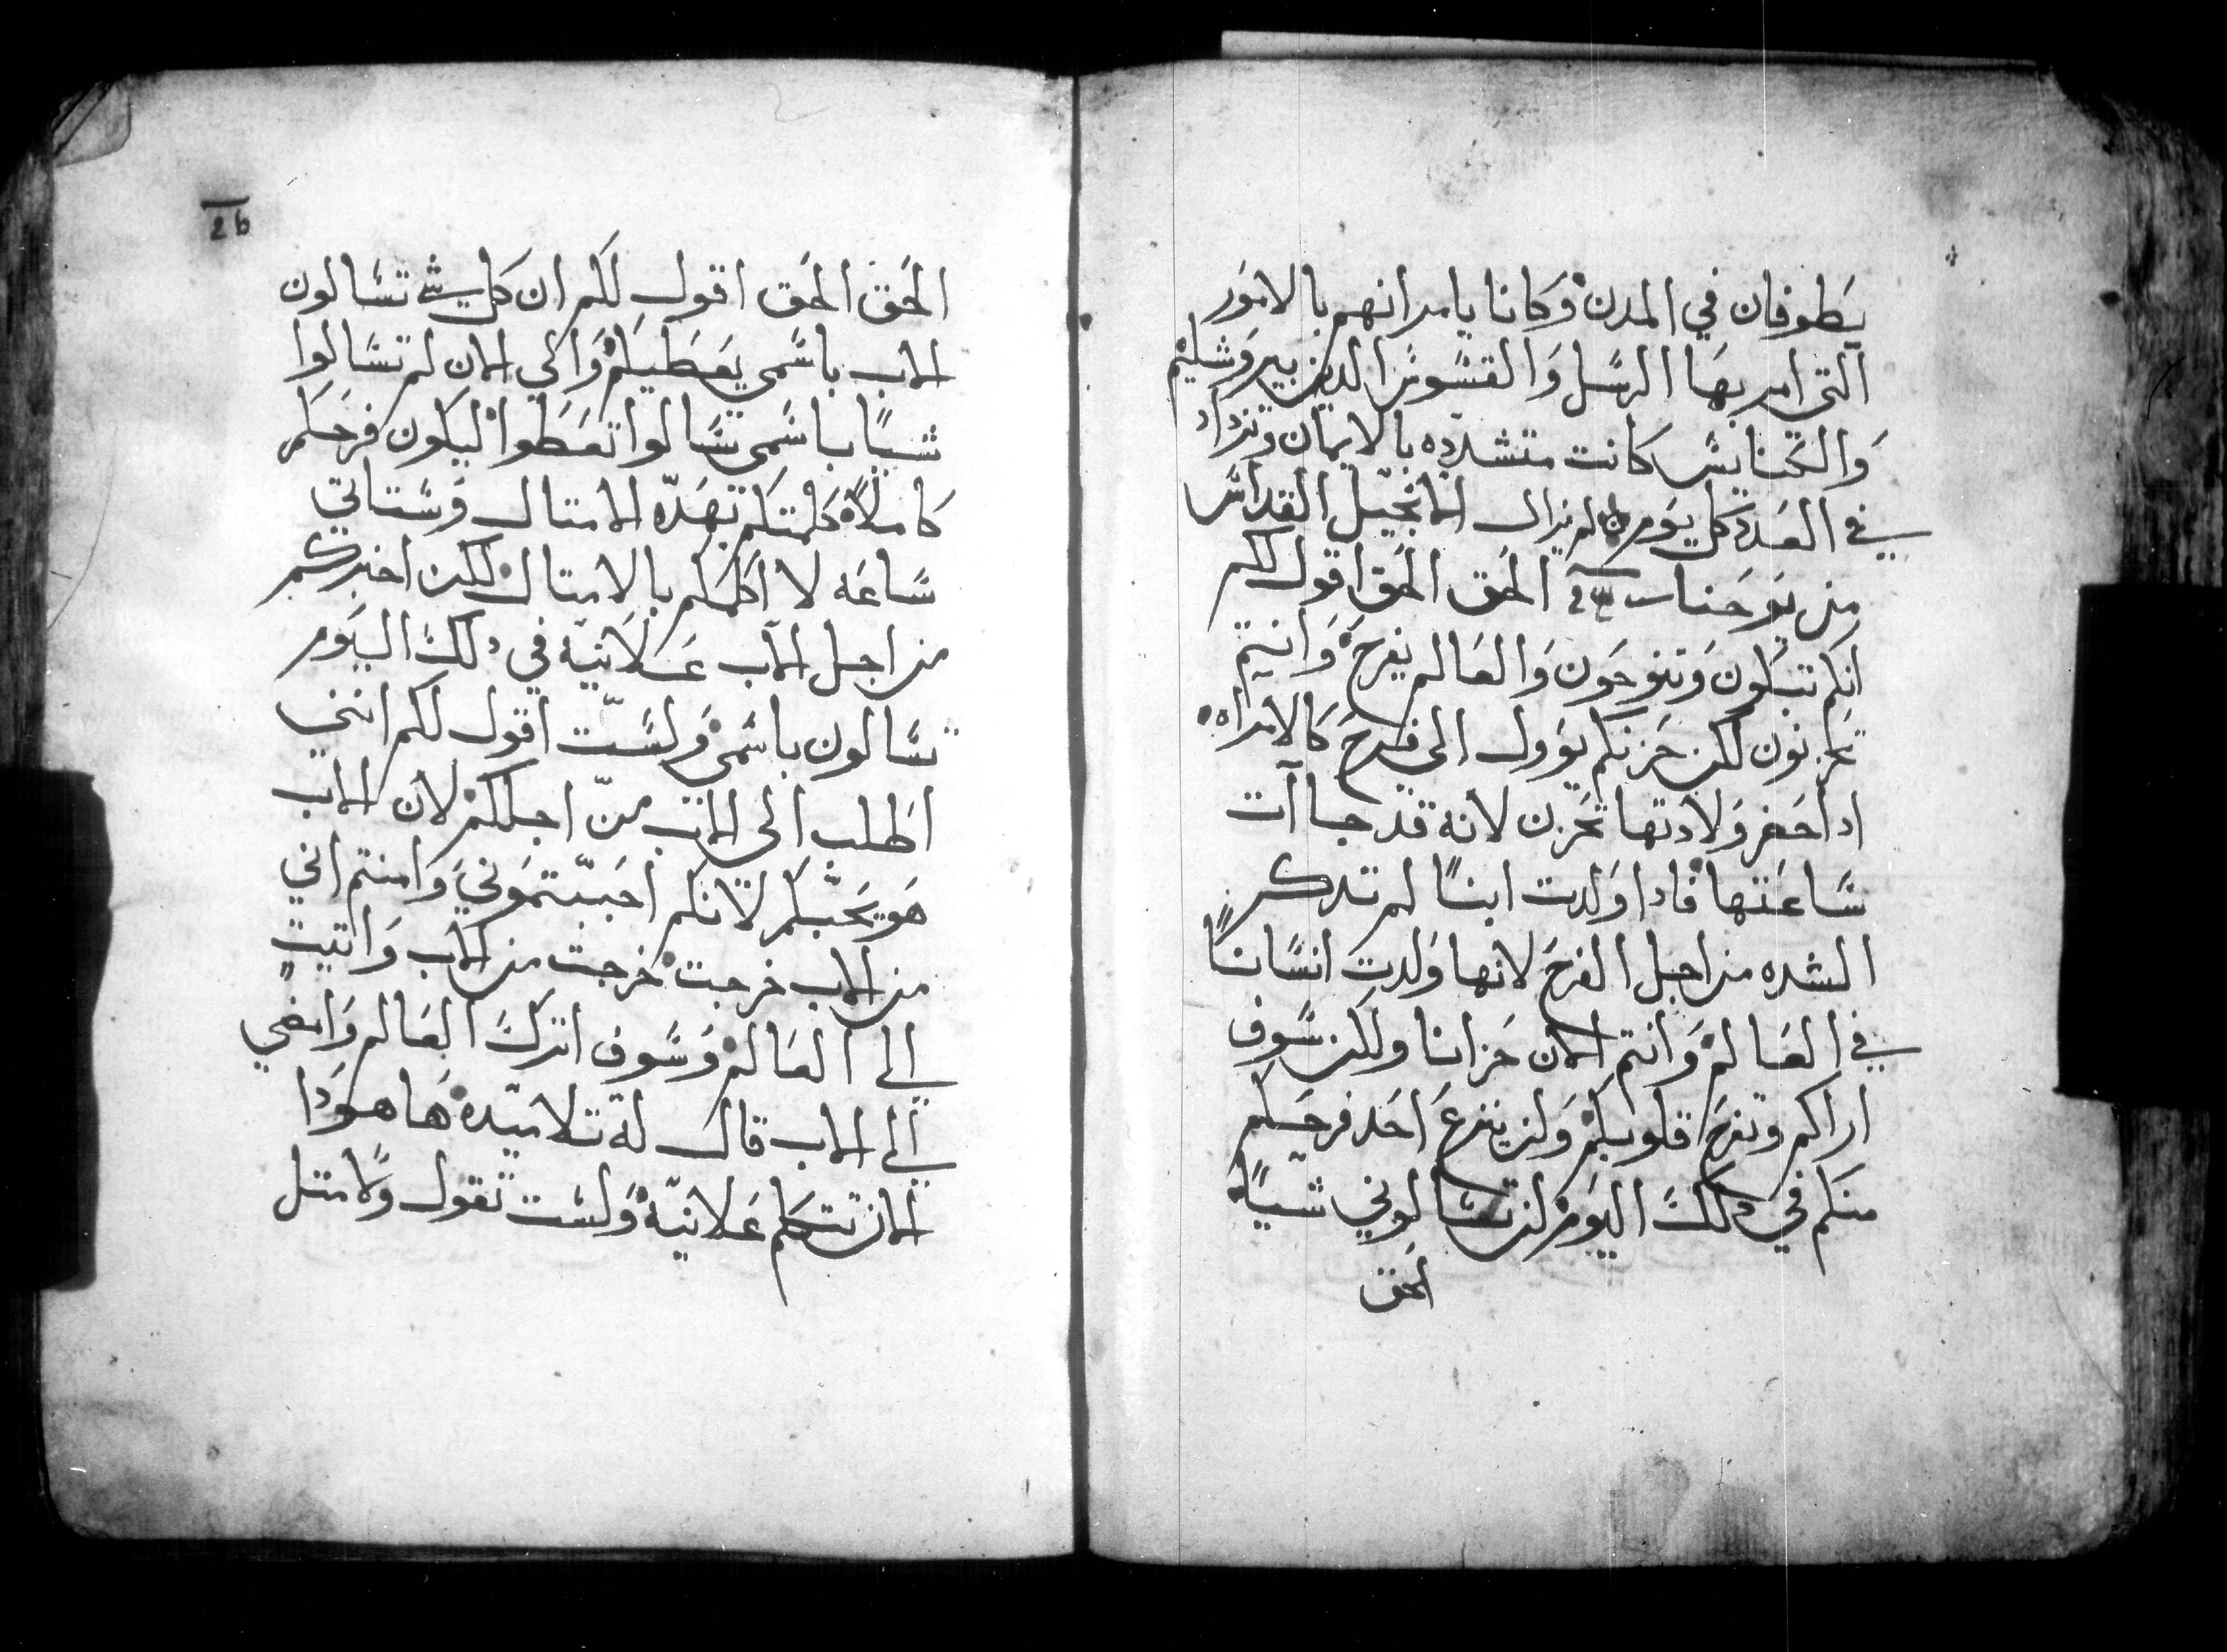 يطوفان في المدن وكانا يامرانهم بالامور
التي امر بها الرسل والقسوس الدين بيروشليم
والكنايس كانت متشدده بالايمان وتزداد
في العدد كل يوم لم يزال الانجيل القداس
من يوحنا الحق الحق اقول لكم
انكم تبكون وتنوحون والعالم يفرح وانتم
تحزنون لكن حزنكم يوول الي فرح كالامراه
ادا حضر ولادتها تحزن لانه قد جاآت
ساعتها فادا ولدت ابنًا لم تدكر
الشده من اجل الفرح لانها ولدت انسانًا
في العالم وانتم الان حزانا ولكن سوف
اراكم وتفرح قلوبكم ولن ينزع احد فرحكم
منكم في دلك اليوم لن تسالوني شيًا
الحق
26
الحق الحق اقول لكم ان كل شي تسالون
الاب باسمي يعطيكم والي الان لم تسالوا
شيًا باسمي تسالوا تعطوا ليكون فرحكم
كاملاً كلمتكم بهده الامتال وستاتي
ساعه لا اكلمكم بالامتال لكن اخبركم
من اجل الاب علانيه في دلك اليوم
تسالون باسمي ولست اقول لكم انني
اطلب الي الاب من اجلكم لان الاب
هو يحبكم لانكم احببتموني وامنتم اني
من الاب خرجت خرجت من الاب واتيت
الي العالم وسوف اترك العالم وامضي
الي الاب قال له تلاميده ها هودا
الان تتكلم علانيه ولست تقول ولا متل